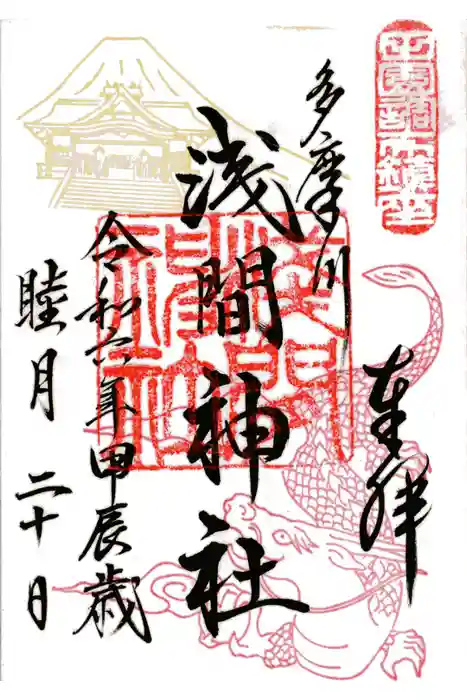 奉拝
多摩川
浅間神社
浅間神社
令和六年甲辰歳
睦月 二十日